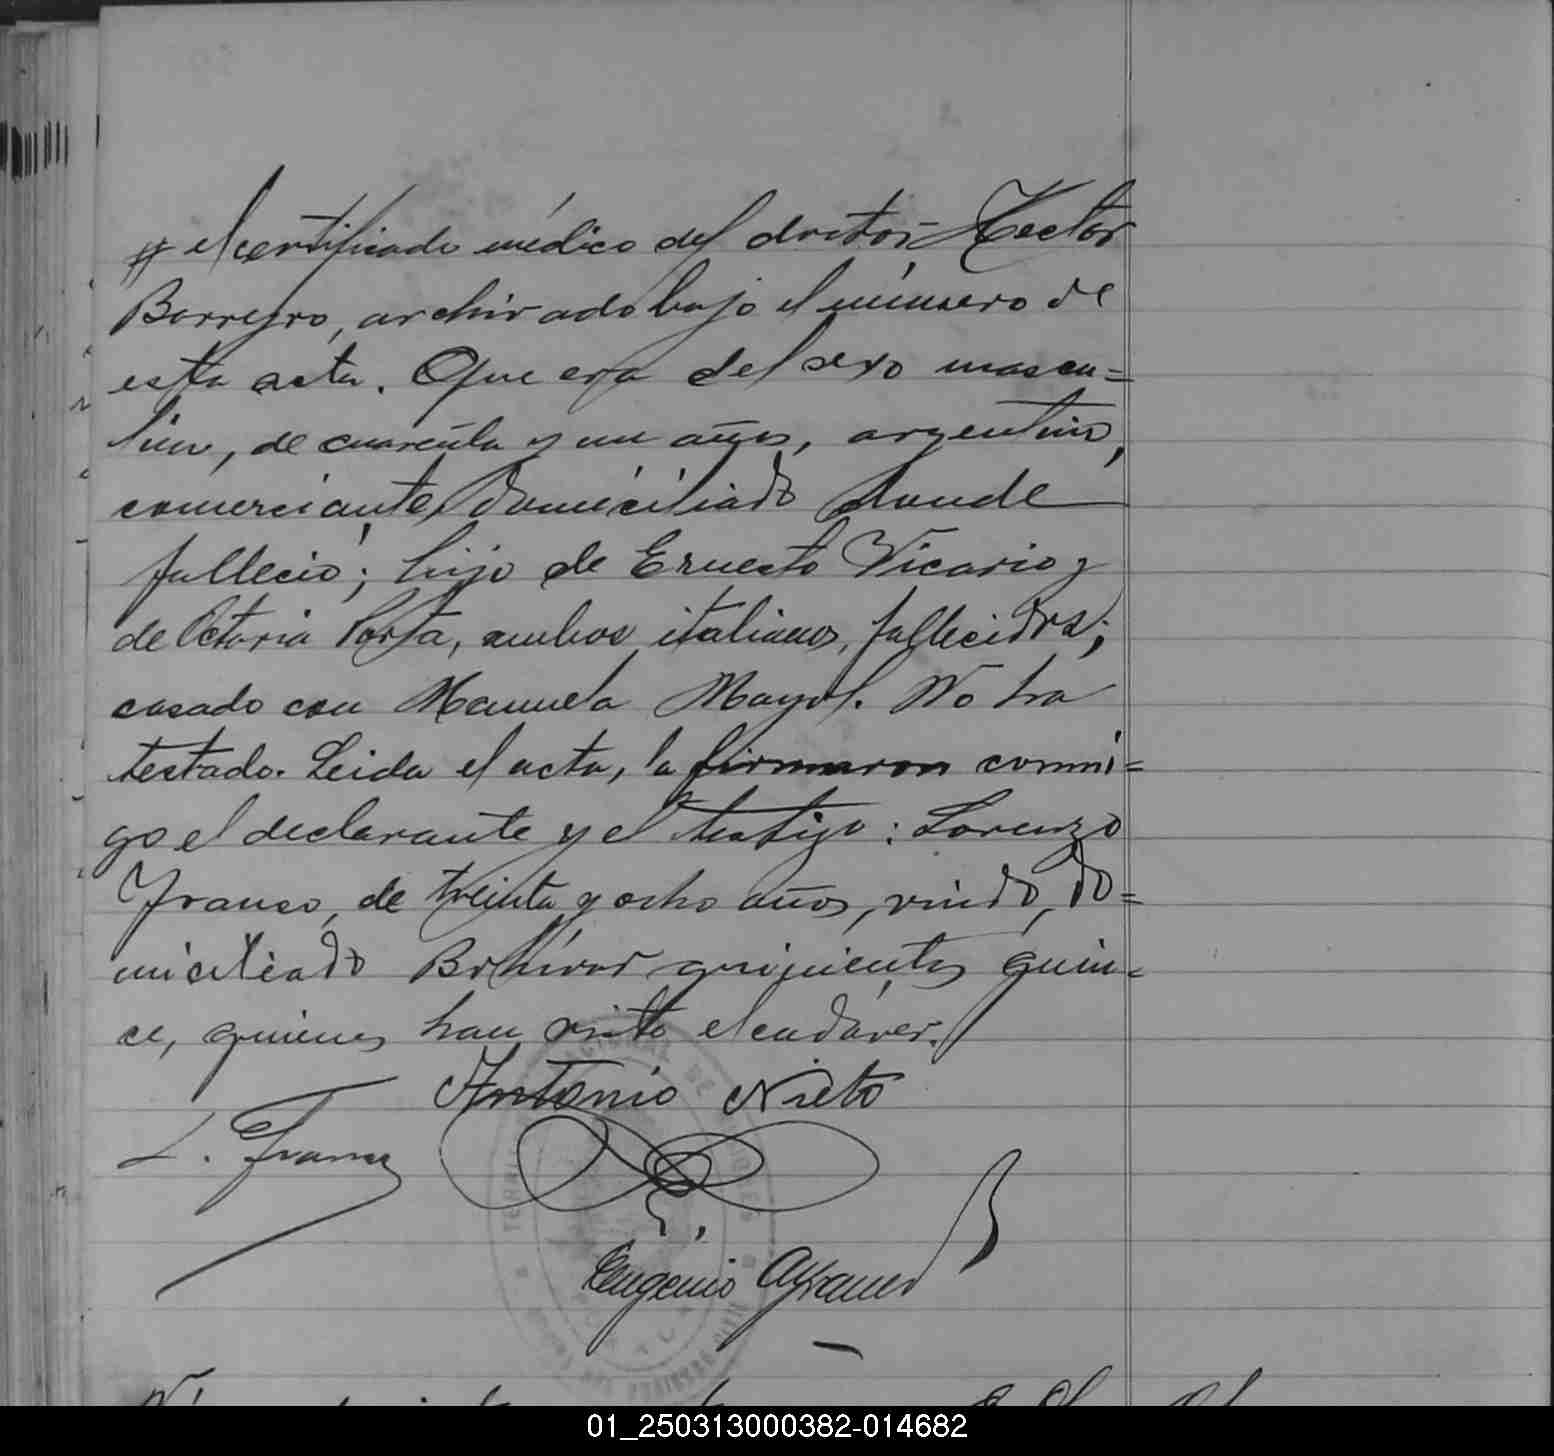 # el certificado médico del doctor Hector
Borreyro, archivado bajo el número de
esta acta. Que era del sexo mascu=
lino, de cuarenta y un años, argentino,
comerciante, domiciliado donde
falleció; hijo de Ernesto Vicario y
de Octavia Porta, ambos italianos, fallecidos;
casado con Manuela Mayol. No ha
testado. Leida el acta, la firmaron conmi=
go el declarante y el testigo: Lorenzo
Franco, de treinta y ocho años, viudo, do=
miciliado Bolívar quinientos quin=
ce, quienes han visto el cadáver.
Antonio Nieto
L. Franco
Eugenio
01_250313000382-014682